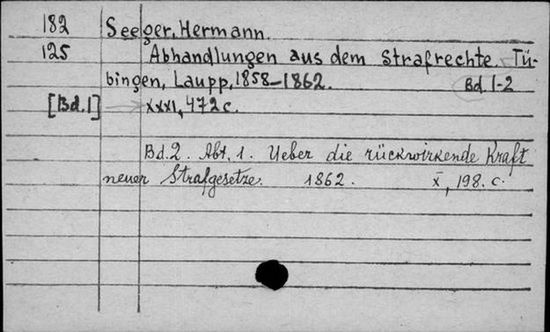 182 Seeger, Hermann.
125 Abhandlungen aus dem Strafrechte. Tü-
bingen, Laupp, 1858-1862. Bd. 1-2
[Bd. 1] XXXI, 472 c.
Bd. 2. Abt. 1. Ueber die rückwirkende Kraft
neuer Strafgesetze. 1862. X, 198. c.